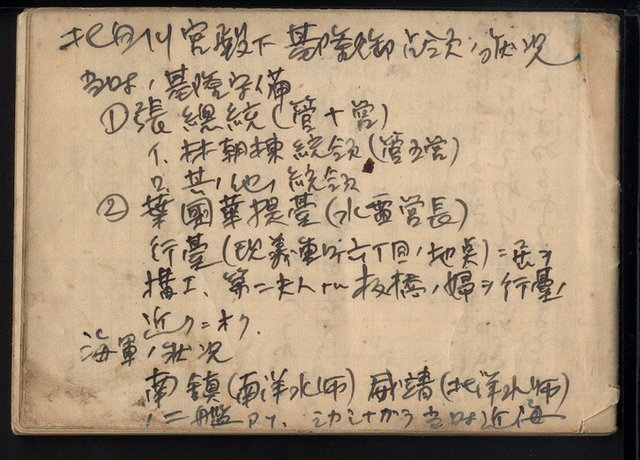 北白川宮殿下基隆御占領ノ状況
当時ノ基隆守備
①張總統(管十営)
イ.林朝棟統領(管五営)
ロ.其ノ他ノ統領
②葉國華提臺(水雷営長)
行臺(現義重町六丁目ノ地点)ニ居ヲ
構エ、第二夫人 板橋ノ婦ヲ行臺ノ
近クニオク.
海軍ノ状況
南鎮(南洋水师) 威靖(北洋水师)
ノ二艦アリ、シカシナガラ当時近海